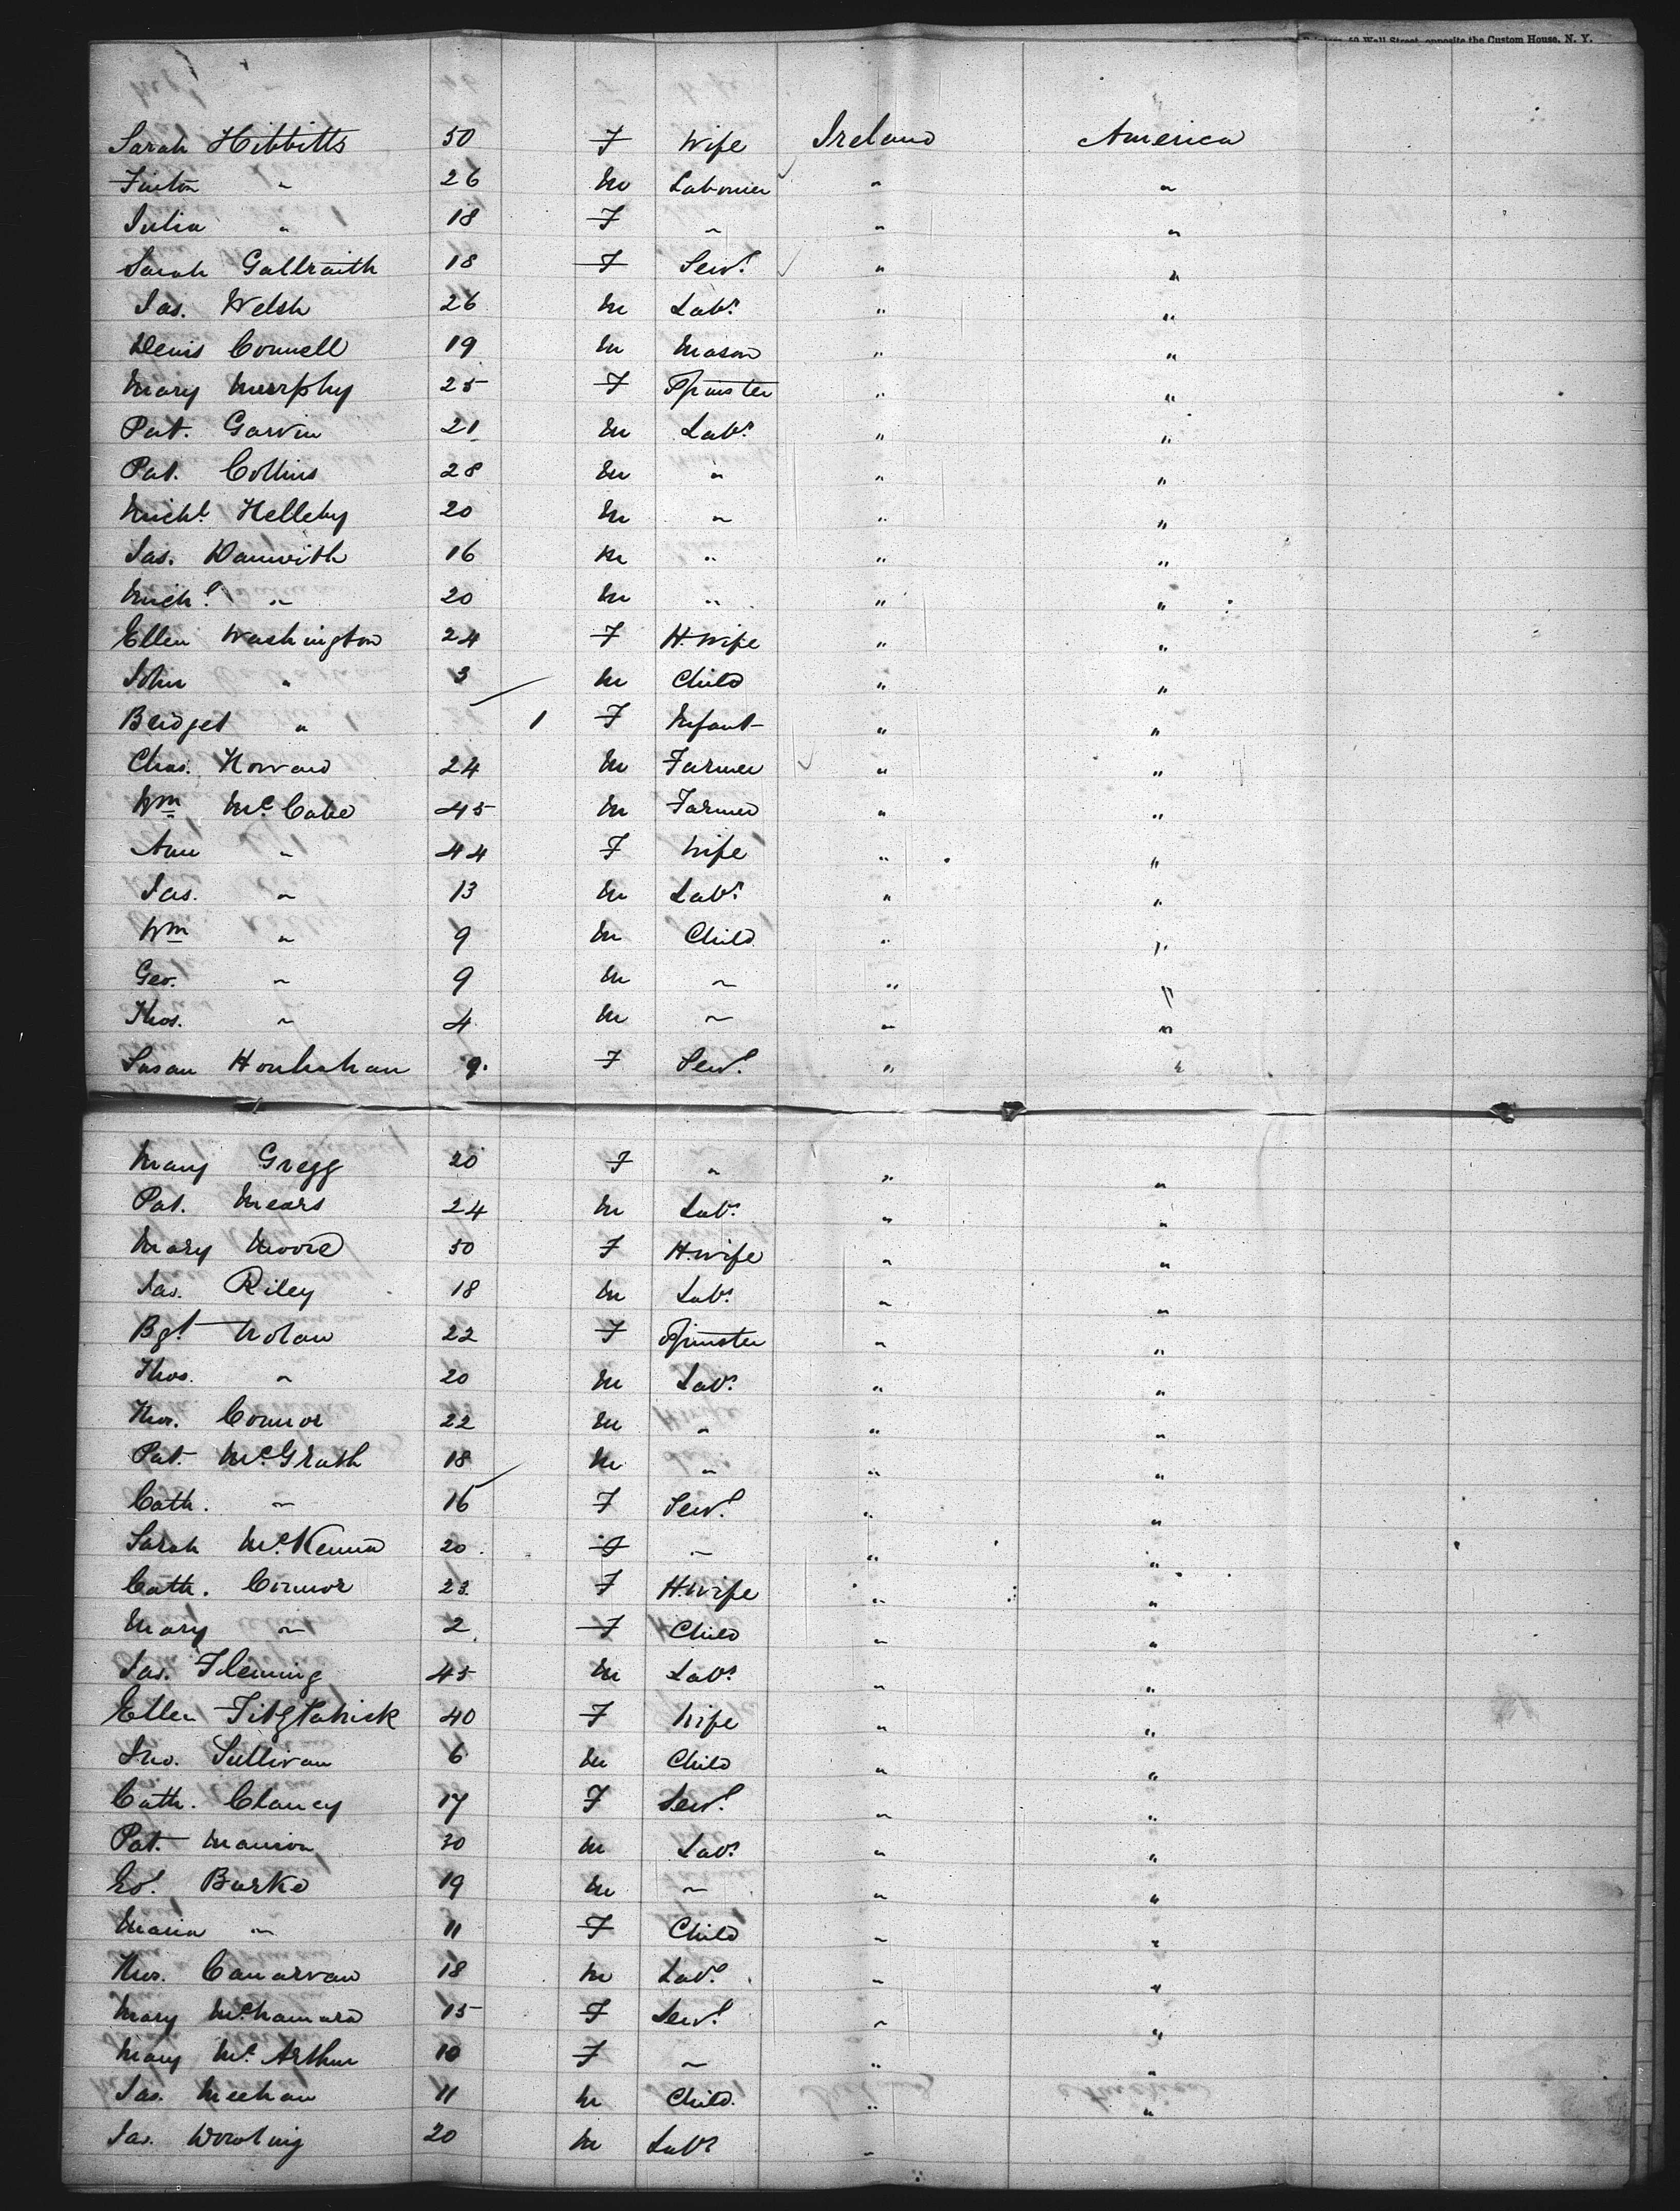 50 Wall Street, opposite the Custom House, N. Y.
Sarah Hibbitts 50 F Wife Ireland America
Finton " 26 M Labourer " "
Julia " 18 F " " "
Sarah Gallraith 18 F Servt " "
Jas. Welsh 26 M Labr " "
Denis Connell 19 M Mason " "
Mary Murphy 25 F Spinster " "
Pat. Garvin 21 M Labr " "
Pat. Collins 28 M " " "
Michl Helleby 20 M " " "
Jas. Danwith 16 M " " "
Michl " 20 M " " "
Ellen Washington 24 F H. Wife " "
John " 3 M Child " "
Bridget " 1 F Infant " "
Chas. Howard 24 M Farmer " "
Wm McCabe 45 M Farmer " "
Ann " 44 F Wife " "
Jas. " 13 M Labr " "
Wm " 9 M Child " "
Geo. " 9 M " " "
Thos. " 4 M " " "
Susan Houlrahan 9 F Servt " "
Mary Gregg 20 F " " "
Pat. Mears 24 M Labr " "
Mary Moore 50 F H. wife " "
Jas. Riley 18 M Labr " "
Bgt Nolan 22 F Spinster " "
Thos. " 20 M Labr " "
Thos. Connor 22 M " " "
Pat. McGrath 18 M " " "
Cath. " 16 F Servt " "
Sarah McKenna 20 F " " "
Cath. Connor 23 F H. wife " "
Mary " 2 F Child " "
Jas. Fleming 45 M Labr " "
Ellen Fitzpatrick 40 F Wife " "
Jno. Sullivan 6 M Child " "
Cath. Clancy 17 F Servt " "
Pat. Manion 30 M Labr " "
Ed. Burke 19 M " " "
Maria " 11 F Child " "
Thos. Canarvan 18 M Labr " "
Mary McNamara 15 F Servt " "
Mary McArthur 10 F " " "
Jas. Meehan 11 M Child " "
Jas. Dowling 20 M Labr "